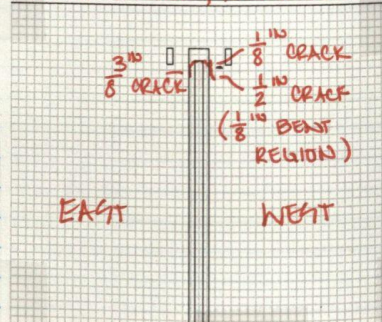 3/8 IN CRACK
1/8 IN CRACK
1/2 IN CRACK
(1/8 IN BENT
REGION)
EAST
WEST